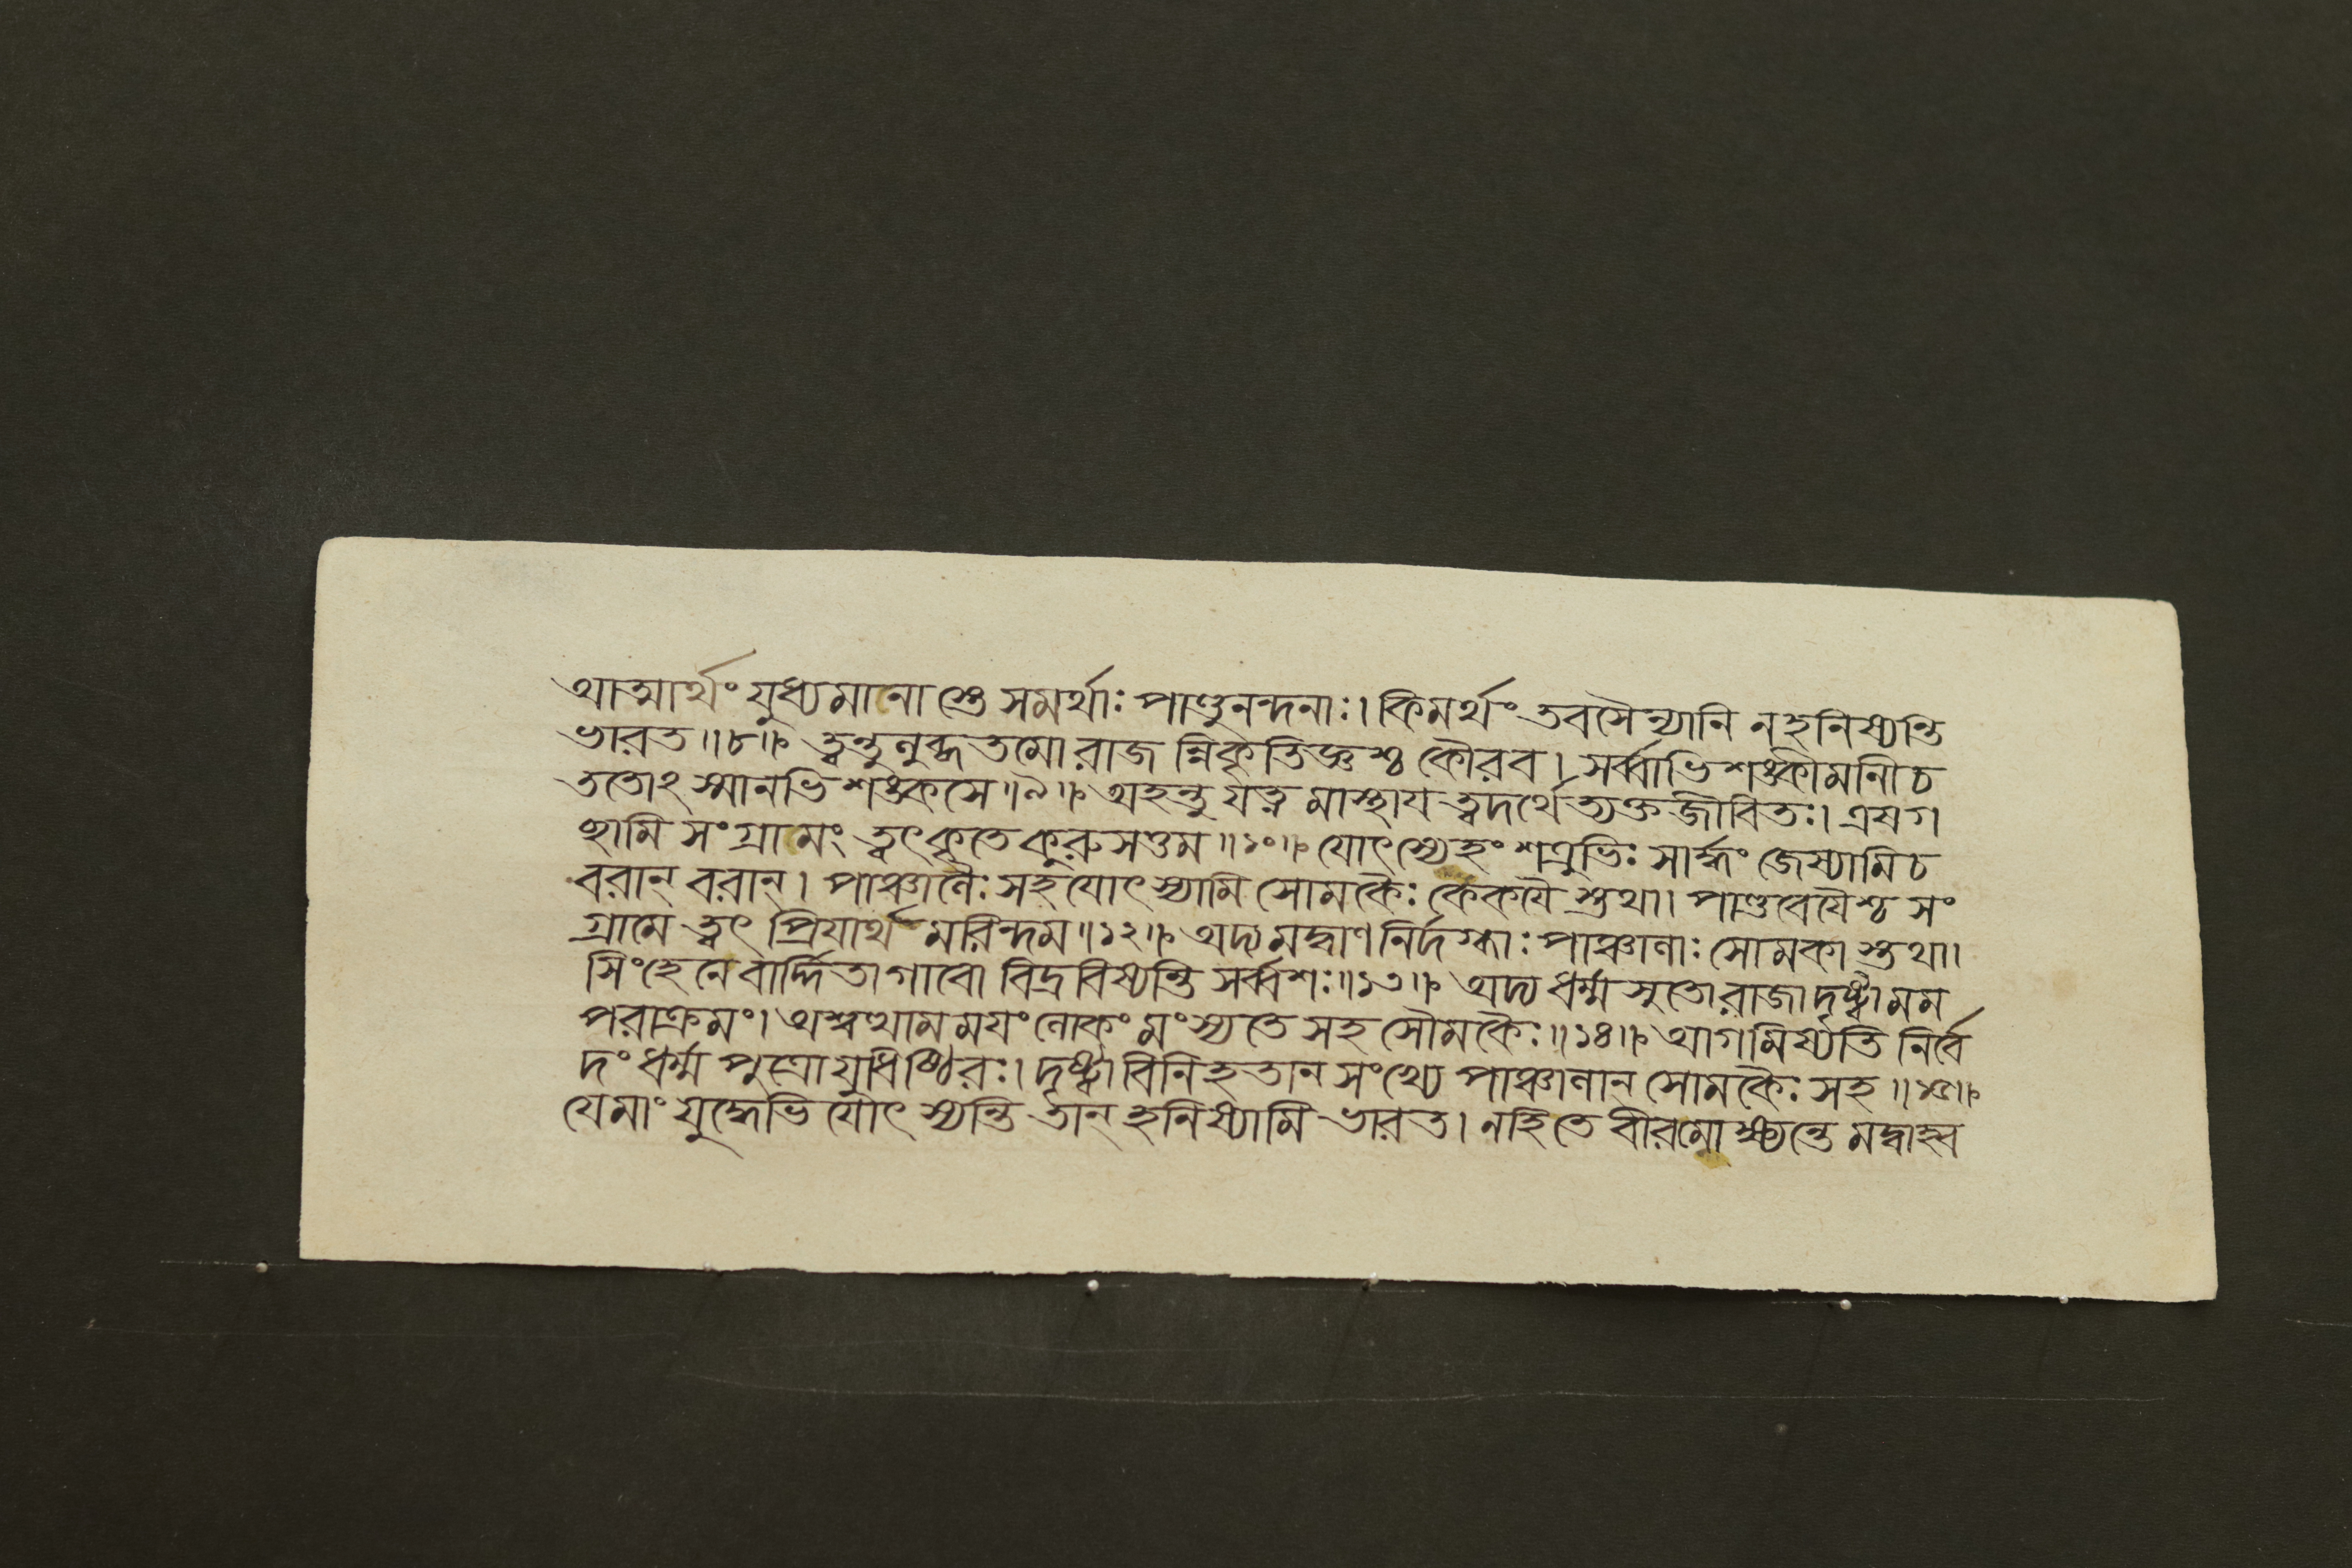 থাত্মার্থং যুধ্যমানাস্তে সমর্থাঃ পাণ্ডুনন্দনাঃ। কিমর্থং তবসৈন্যানি নহনিষ্যন্তি
ভারত॥৮॥ ত্বন্তুলুব্ধতমোরাজন্নিকৃতিজ্ঞশ্চ কৌরব। সর্ব্বাভিশঙ্কীমানীচ
ততোঽস্মানভিশঙ্কসে॥৯॥ অহন্তু যত্নমাস্থায ত্বদর্থেত্যক্তজীবিতঃ। এষগ
চ্ছামি সংগ্রামং ত্বৎকৃতে কুরুসত্তম॥১০॥ যোৎস্যেহং শত্রুভিঃ সার্দ্ধং জেষ্যামিচ
বরান্ বরান্। পাঞ্চালৈঃ সহযোৎস্যামি সোমকৈঃ কেকযৈস্তথা। পাণ্ডবেযৈশ্চ সং
গ্রামে ত্বৎপ্রিযার্থমরিন্দম॥১২॥ অদ্যমদ্বাণনির্দগ্ধাঃ পাঞ্চালাঃ সোমকাস্তথা।
সিংহেনেবার্দ্দিতাগাবো বিদ্রবিষ্যন্তি সর্ব্বশঃ॥১৩॥ অদ্য ধর্ম্মসুতোরাজাদৃষ্ট্বামম
পরাক্রমং। অশ্বত্থামমযং লোকং মংস্যতে সহ সৌমকৈঃ॥১৪॥ আগমিষ্যতি নির্বে
দং ধর্ম্মপুত্রোযুধিষ্ঠিরঃ। দৃষ্ট্বাবিনিহতান সংখ্যে পাঞ্চালান্ সোমকৈঃ সহ॥১৫॥
যেমাং যুদ্ধেভিযোৎস্যন্তি তান্ হনিষ্যামি ভারত। নহিতে বীরমোক্ষ্যন্তে মদ্বাহ্ব